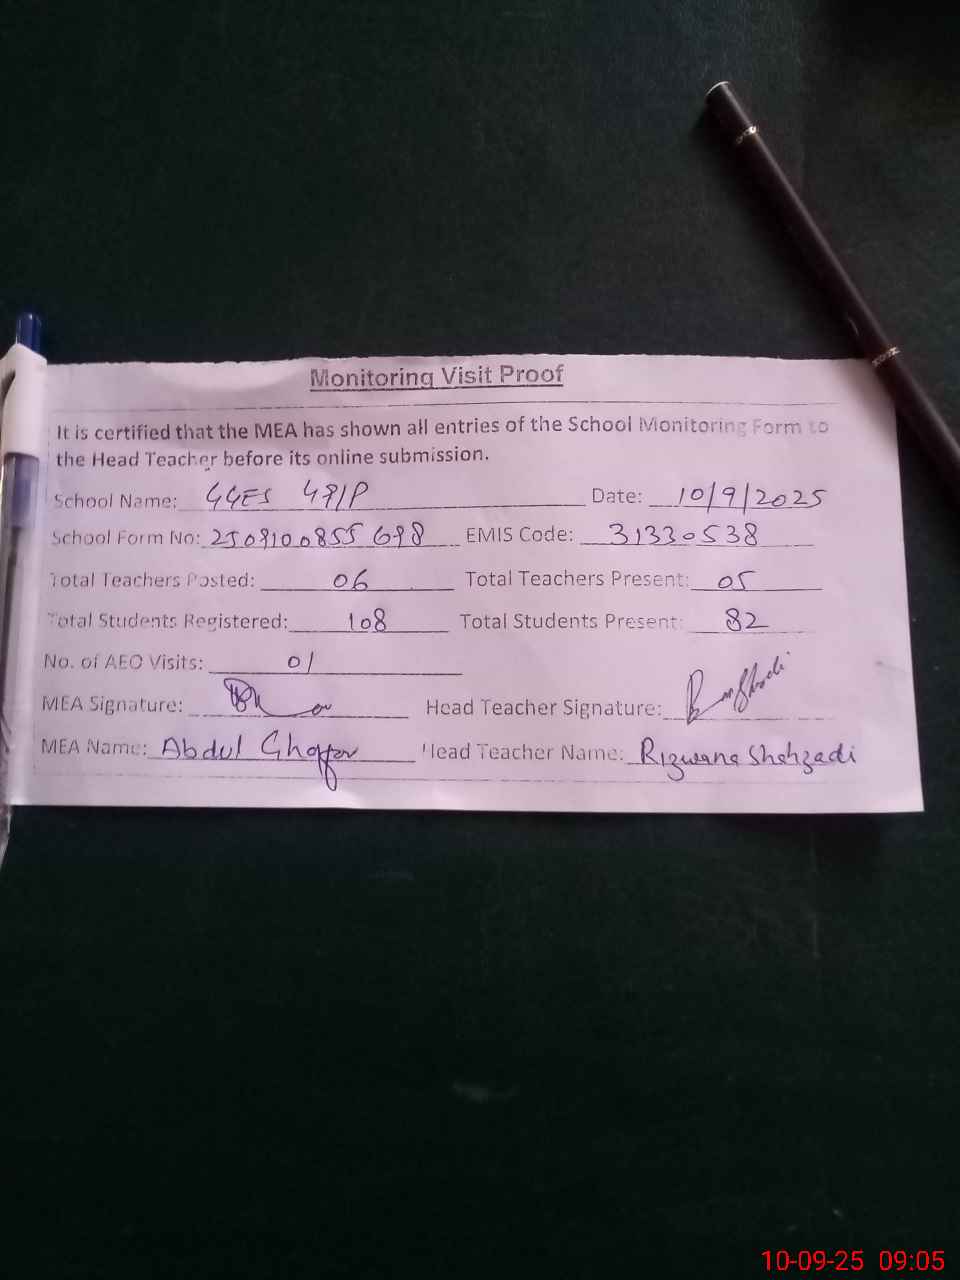 Monitoring Visit Proof
It is certified that the MEA has shown all entries of the School Monitoring Form to
the Head Teacher before its online submission.
School Name: GGES 49/P Date: 10/9/2025
School Form No: 2509100855698 EMIS Code: 31330538
Total Teachers Posted: 06 Total Teachers Present: 05
Total Students Registered: 108 Total Students Present: 82
No. of AEO Visits: 01
MEA Signature: Head Teacher Signature:
MEA Name: Abdul Ghaffar Head Teacher Name: Rizwana Shahzadi
10-09-25 09:05